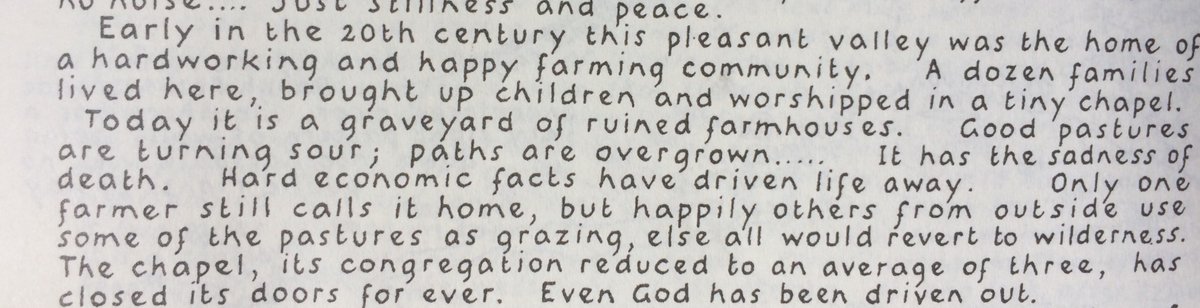 no noise.... Just stillness and peace.
Early in the 20th century this pleasant valley was the home of
a hardworking and happy farming community. A dozen families
lived here, brought up children and worshipped in a tiny chapel.
Today it is a graveyard of ruined farmhouses. Good pastures
are turning sour; paths are overgrown..... It has the sadness of
death. Hard economic facts have driven life away. Only one
farmer still calls it home, but happily others from outside use
some of the pastures as grazing, else all would revert to wilderness.
The chapel, its congregation reduced to an average of three, has
closed its doors for ever. Even God has been driven out.